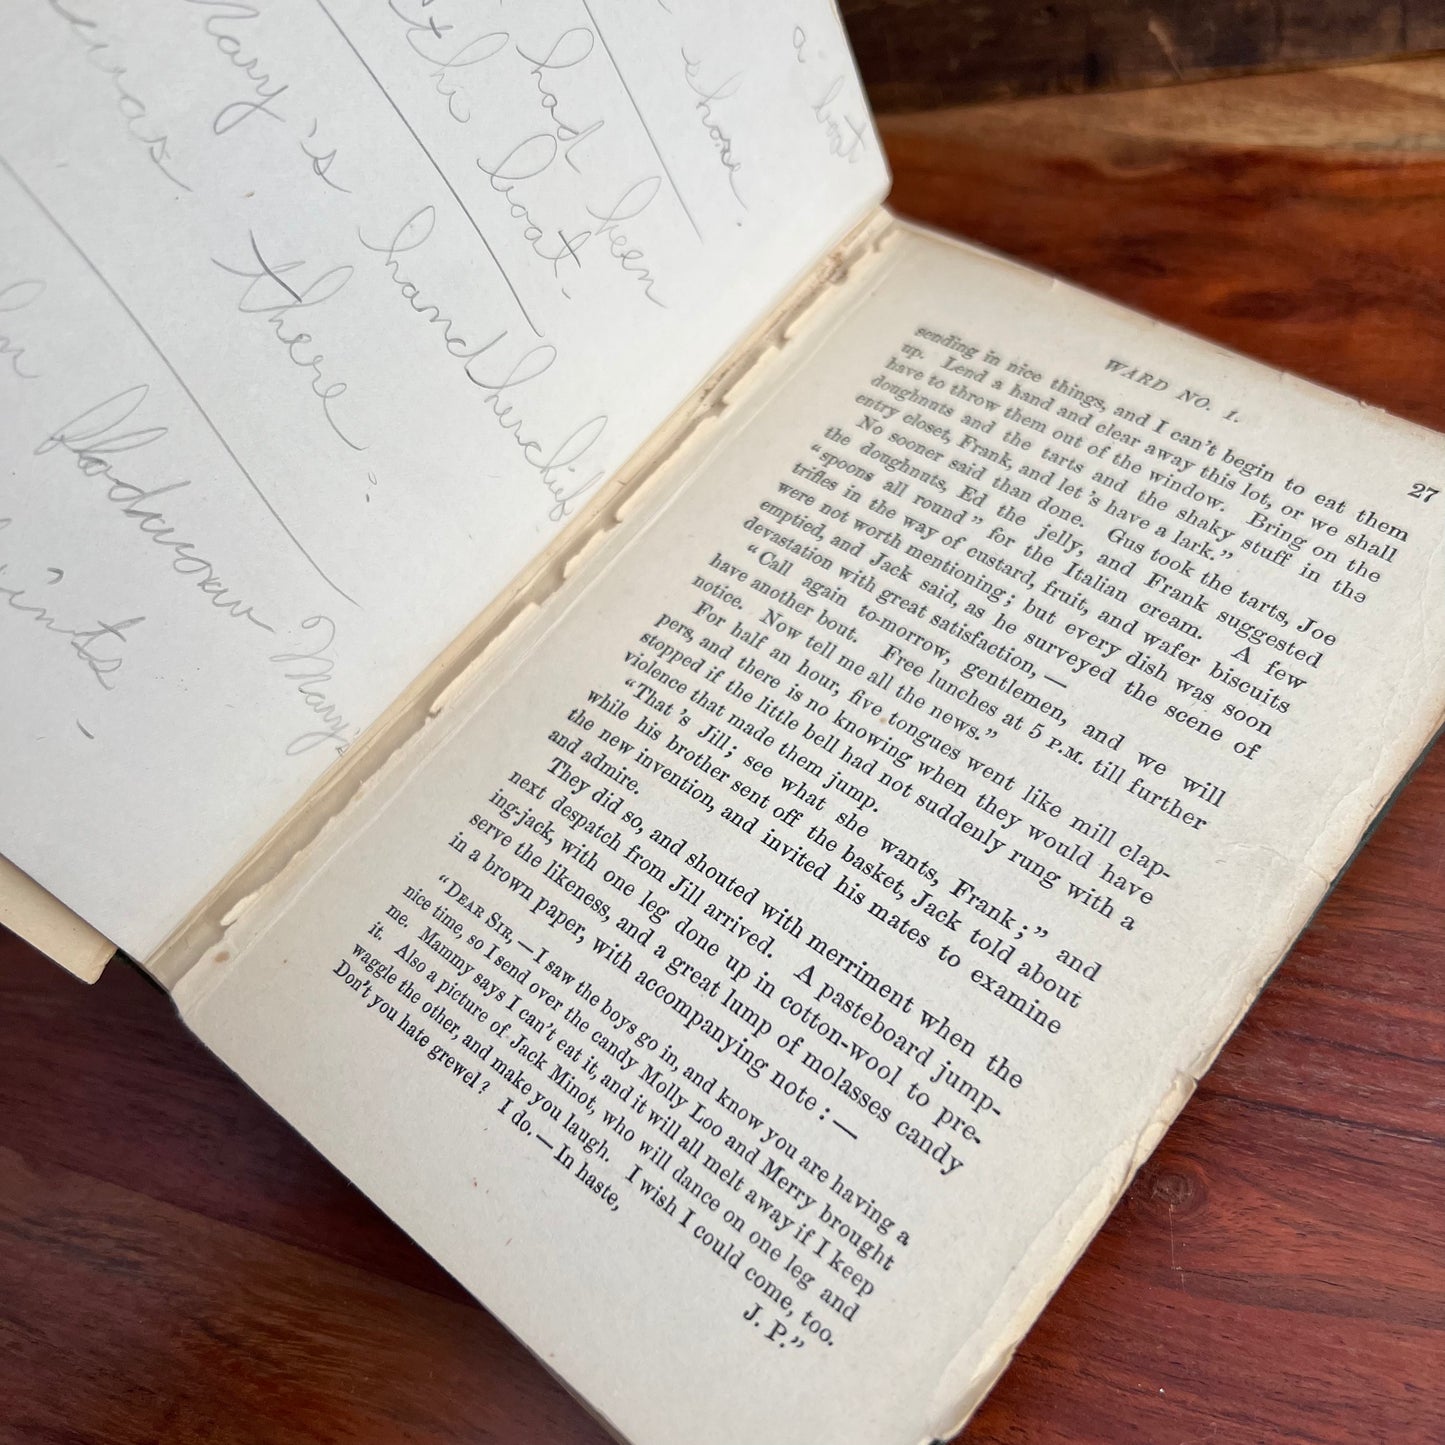 a boat
shore.
had been
the boat.
Mary's handkerchief
was there.
floorboards Mary's
WARD NO. 1.
27
sending in nice things, and I can't begin to eat them
up. Lend a hand and clear away this lot, or we shall
have to throw them out of the window. Bring on the
doughnuts and the tarts and the shaky stuff in the
entry closet, Frank, and let's have a lark."
No sooner said than done. Gus took the tarts, Joe
the doughnuts, Ed the jelly, and Frank suggested
"spoons all round" for the Italian cream. A few
trifles in the way of custard, fruit, and wafer biscuits
were not worth mentioning; but every dish was soon
emptied, and Jack said, as he surveyed the scene of
devastation with great satisfaction, —
"Call again to-morrow, gentlemen, and we will
have another bout. Free lunches at 5 P.M. till further
notice. Now tell me all the news."
For half an hour, five tongues went like mill clap-
pers, and there is no knowing when they would have
stopped if the little bell had not suddenly rung with a
violence that made them jump.
"That's Jill; see what she wants, Frank;" and
while his brother sent off the basket, Jack told about
the new invention, and invited his mates to examine
and admire.
They did so, and shouted with merriment when the
next despatch from Jill arrived. A pasteboard jump-
ing-jack, with one leg done up in cotton-wool to pre-
serve the likeness, and a great lump of molasses candy
in a brown paper, with accompanying note : —
"DEAR SIR, — I saw the boys go in, and know you are having a
nice time, so I send over the candy Molly Loo and Merry brought
me. Mammy says I can't eat it, and it will all melt away if I keep
it. Also a picture of Jack Minot, who will dance on one leg and
waggle the other, and make you laugh. I wish I could come, too.
Don't you hate grewel? I do. — In haste,
J. P."